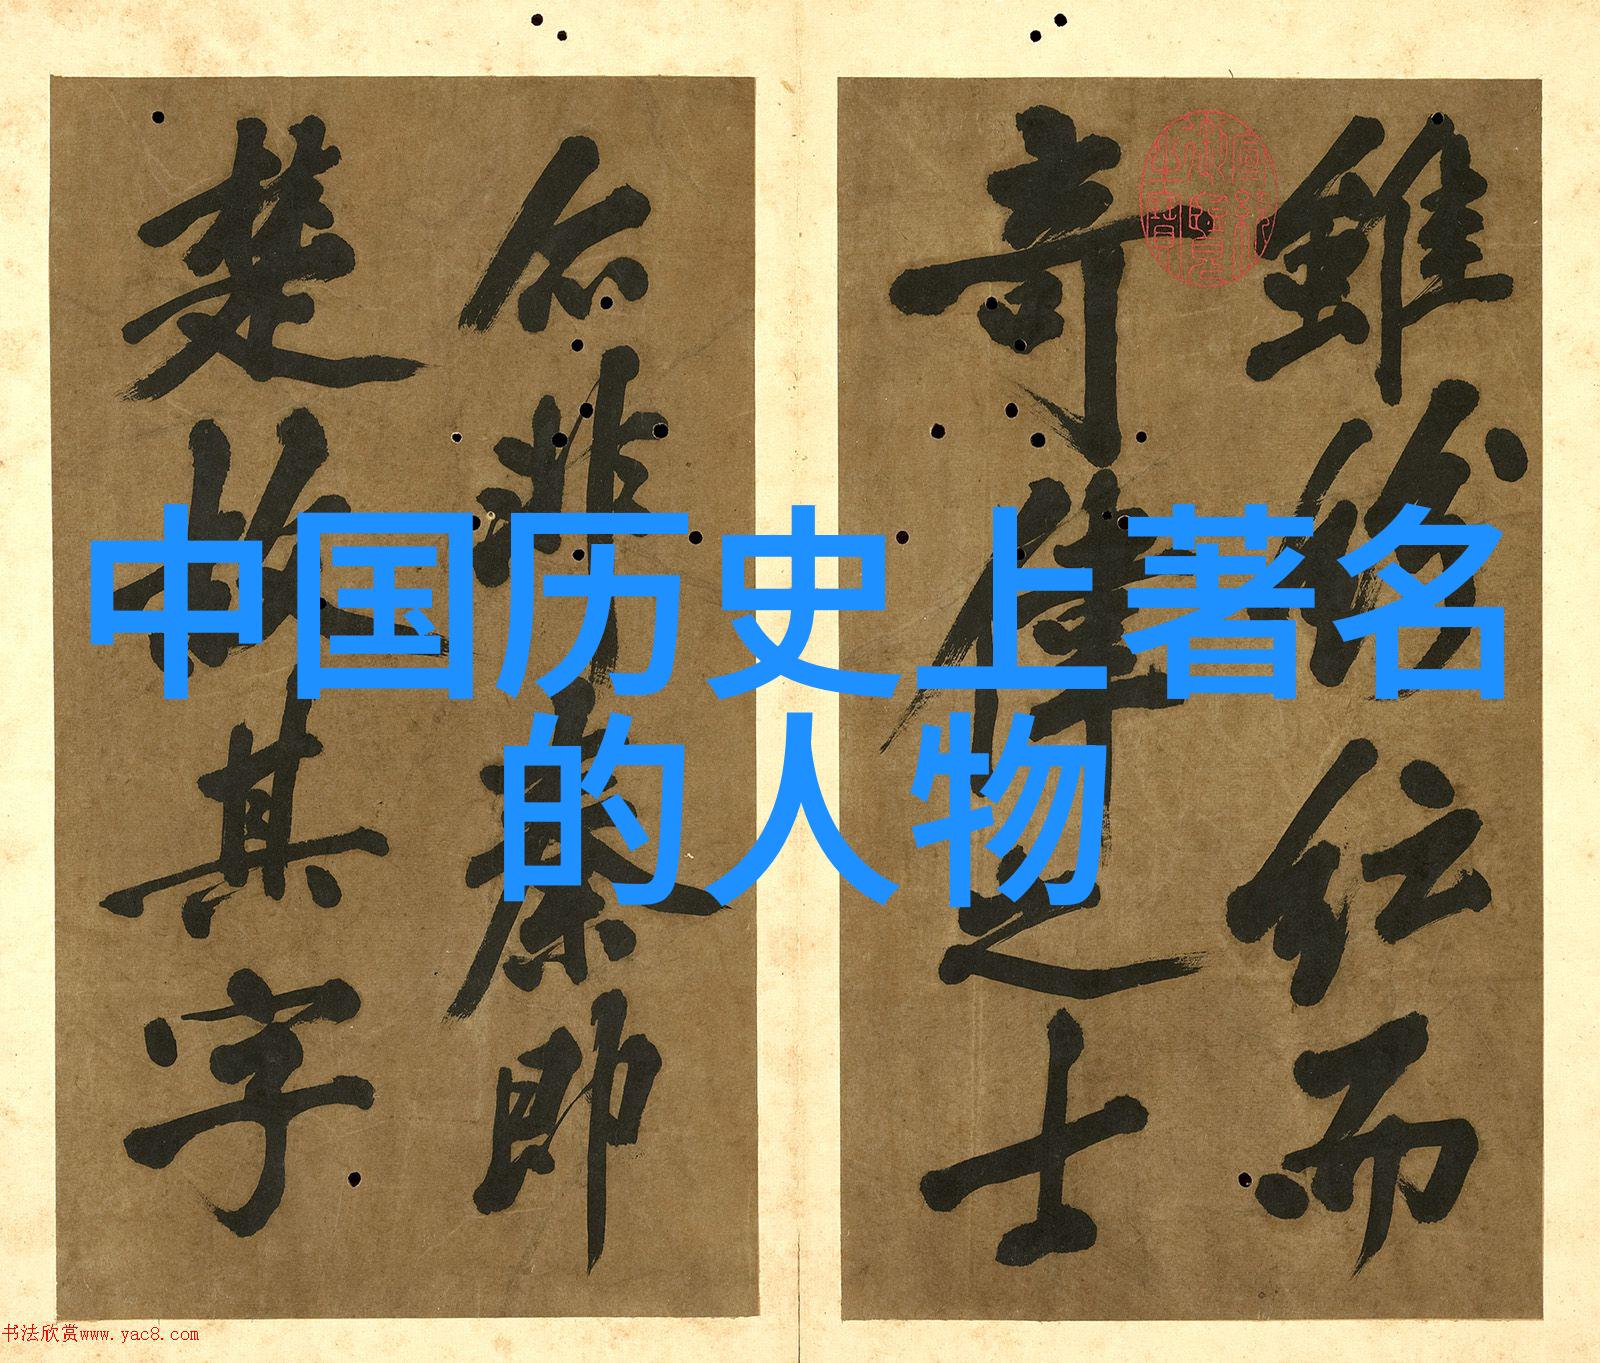 中国历史上著名
的人物
雖仕而
奇偉之士
非秦即
楚故其字
书法欣赏www.yac8.com